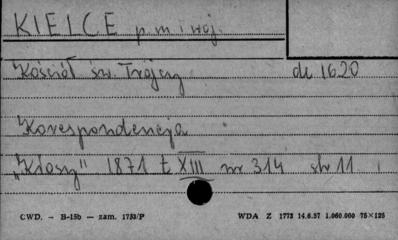 KIELCE p. m. i woj.
Kościół św. Trójcy de 1620
Korespondencja
"Kłosy" 1871 t. XIII nr 314 str 11
CWD. — B-15b — zam. 1753/P WDA Z 1773 14.6.57 1.060.000 75×125